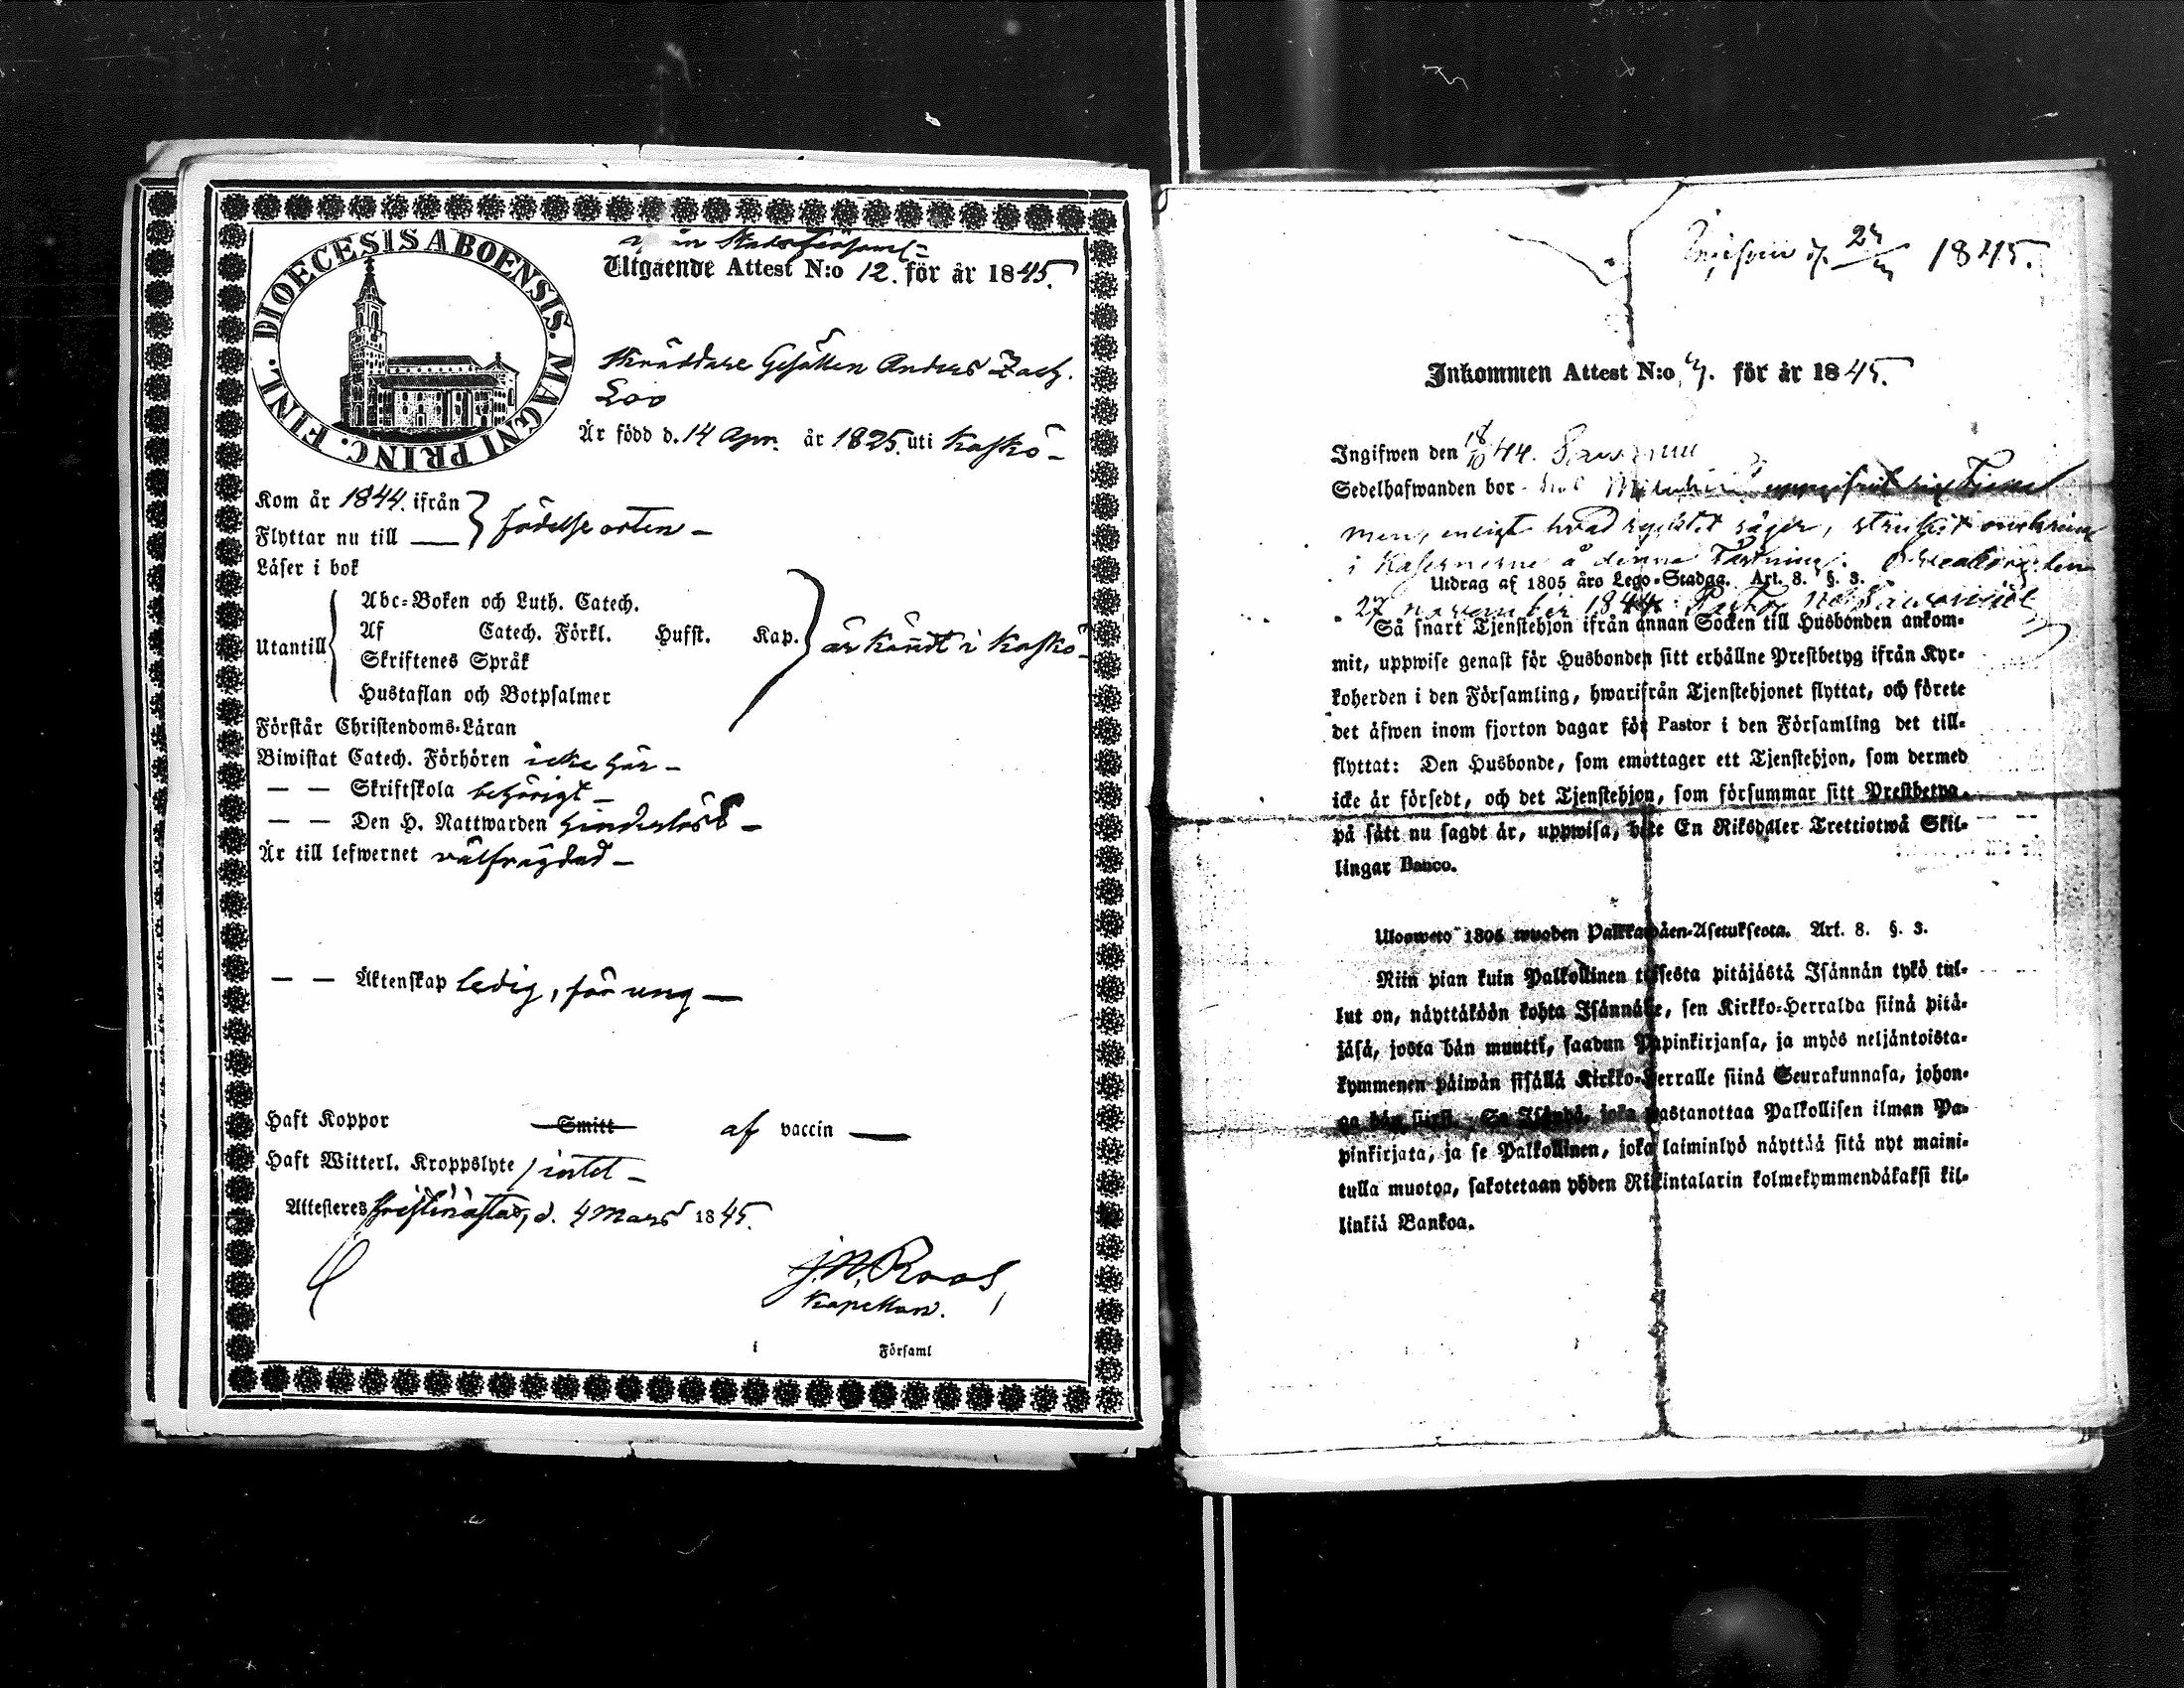 DIOECESIS ABOENSIS. MAGNI PRINC. FINL.
från Stadsförsaml-
Utgående Attest N:o 12. för år 1845.
Skräddare Gesällen Anders Zach.
Loo
Är född d. 14 Apr. år 1825. uti Kaskö -
Kom år 1844. ifrån
Flyttar nu till —
födelse orten -
Läser i bok
Utantill
Abc-Boken och Luth. Catech.
Af Catech. Förkl. Husst. Kap.
Skriftenes Språk
Hustaflan och Botpsalmer
är kändt i Kaskö -
Förstår Christendoms-Läran
Biwistat Catech. Förhören icke här -
— — Skriftskola behörigt -
— — Den H. Nattwarden hinderlöst -
Är till lefwernet wälfrägdad -
— — Äktenskap ledig, för ung —
Haft Koppor Smitt af vaccin —
Haft Witterl. Kroppslyte / intet -
Attesteres Christinæstad, d. 4 Mars 1845.
J. N. Roos,
Kapellan.
i Församl
1845.
Inkommen Attest N:o 7. för år 1845.
Ingifwen den 18/10 44.
Sedelhafwanden bor hos
men, enligt hvad ryktet säger,
i Kasernerne å denne
27 november 1844.
Utdrag af 1805 års Lego-Stadga. Art. 8. §. 3.
Så snart Tjenstehjon ifrån annan Socken till Husbonden ankom-
mit, uppwise genast för Husbonden sitt erhållne Prestbetyg ifrån Kyr-
koherden i den Församling, hwarifrån Tjenstehjonet flyttat, och förete
det äfwen inom fjorton dagar för Pastor i den Församling det till-
flyttat: Den Husbonde, som emottager ett Tjenstehjon, som dermed
icke är försedt, och det Tjenstehjon, som försummar sitt Prestbetyg,
på sätt nu sagdt är, uppwisa, böte En Riksdaler Trettiotwå Skil-
lingar Banco.
Ulosweto 1805 wuoden Palkkawäen-Asetuksesta. Art. 8. §. 3.
Niin pian kuin Palkollinen toisesta pitäjästä Isännän tykö tul-
lut on, näyttäköön kohta Isännälle, sen Kirkko-Herralda siinä pitä-
jäsä, josta hän muutti, saadun Papinkirjansa, ja myös neljäntoista-
kymmenen päiwän sisällä Kirkko-Herralle siinä Seurakunnasa, johon-
ga hän siirsi. Se Isändä, joka wastanottaa Palkollisen ilman Pa-
pinkirjata, ja se Palkollinen, joka laiminlyö näyttää sitä nyt maini-
tulla muotoa, sakotetaan yhden Riikintalarin kolmekymmendäkaksi kil-
linkiä Bankoa.